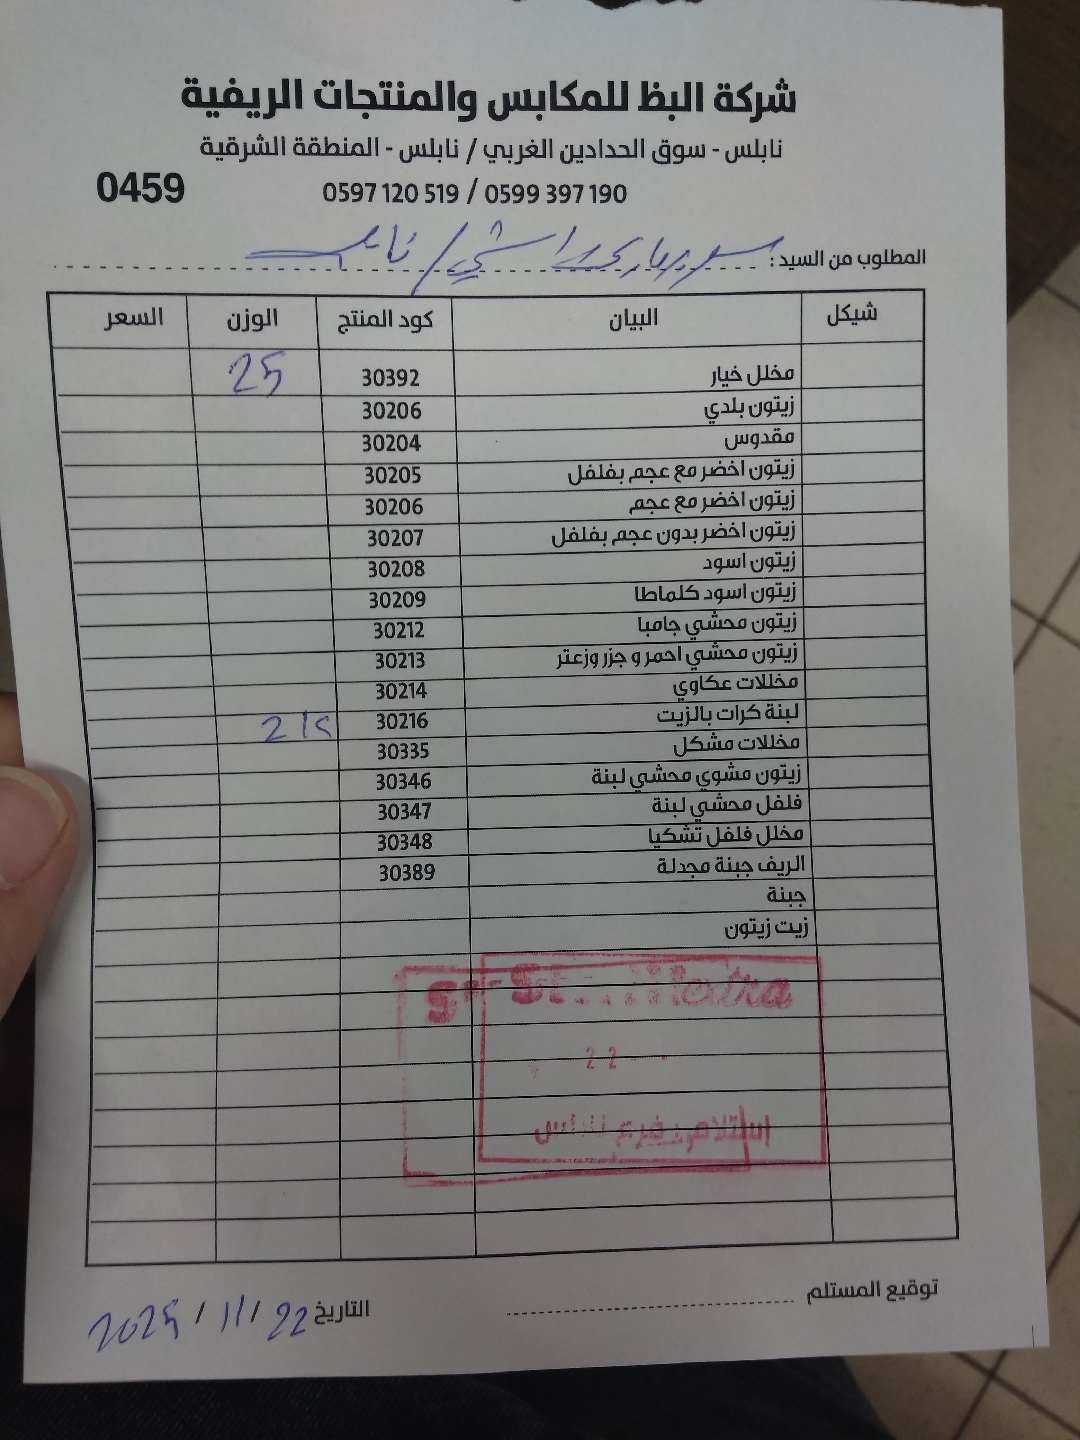 شركة البظ للمكابس والمنتجات الريفية
نابلس - سوق الحدادين الغربي / نابلس - المنطقة الشرقية
0459
0597 120 519 / 0599 397 190
المطلوب من السيد : / نابلس
شيكل البيان كود المنتج الوزن السعر
مخلل خيار 30392 25
زيتون بلدي 30206
مقدوس 30204
زيتون اخضر مع عجم بفلفل 30205
زيتون اخضر مع عجم 30206
زيتون اخضر بدون عجم بفلفل 30207
زيتون اسود 30208
زيتون اسود كلماطا 30209
زيتون محشي جامبا 30212
زيتون محشي احمر و جزر وزعتر 30213
مخللات عكاوي 30214
لبنة كرات بالزيت 30216
مخللات مشكل 30335
زيتون مشوي محشي لبنة 30346
فلفل محشي لبنة 30347
مخلل فلفل تشكيا 30348
الريف جبنة مجدلة 30389
جبنة
زيت زيتون
22
استلام فرع نابلس
توقيع المستلم
التاريخ 22 / 11 / 2025